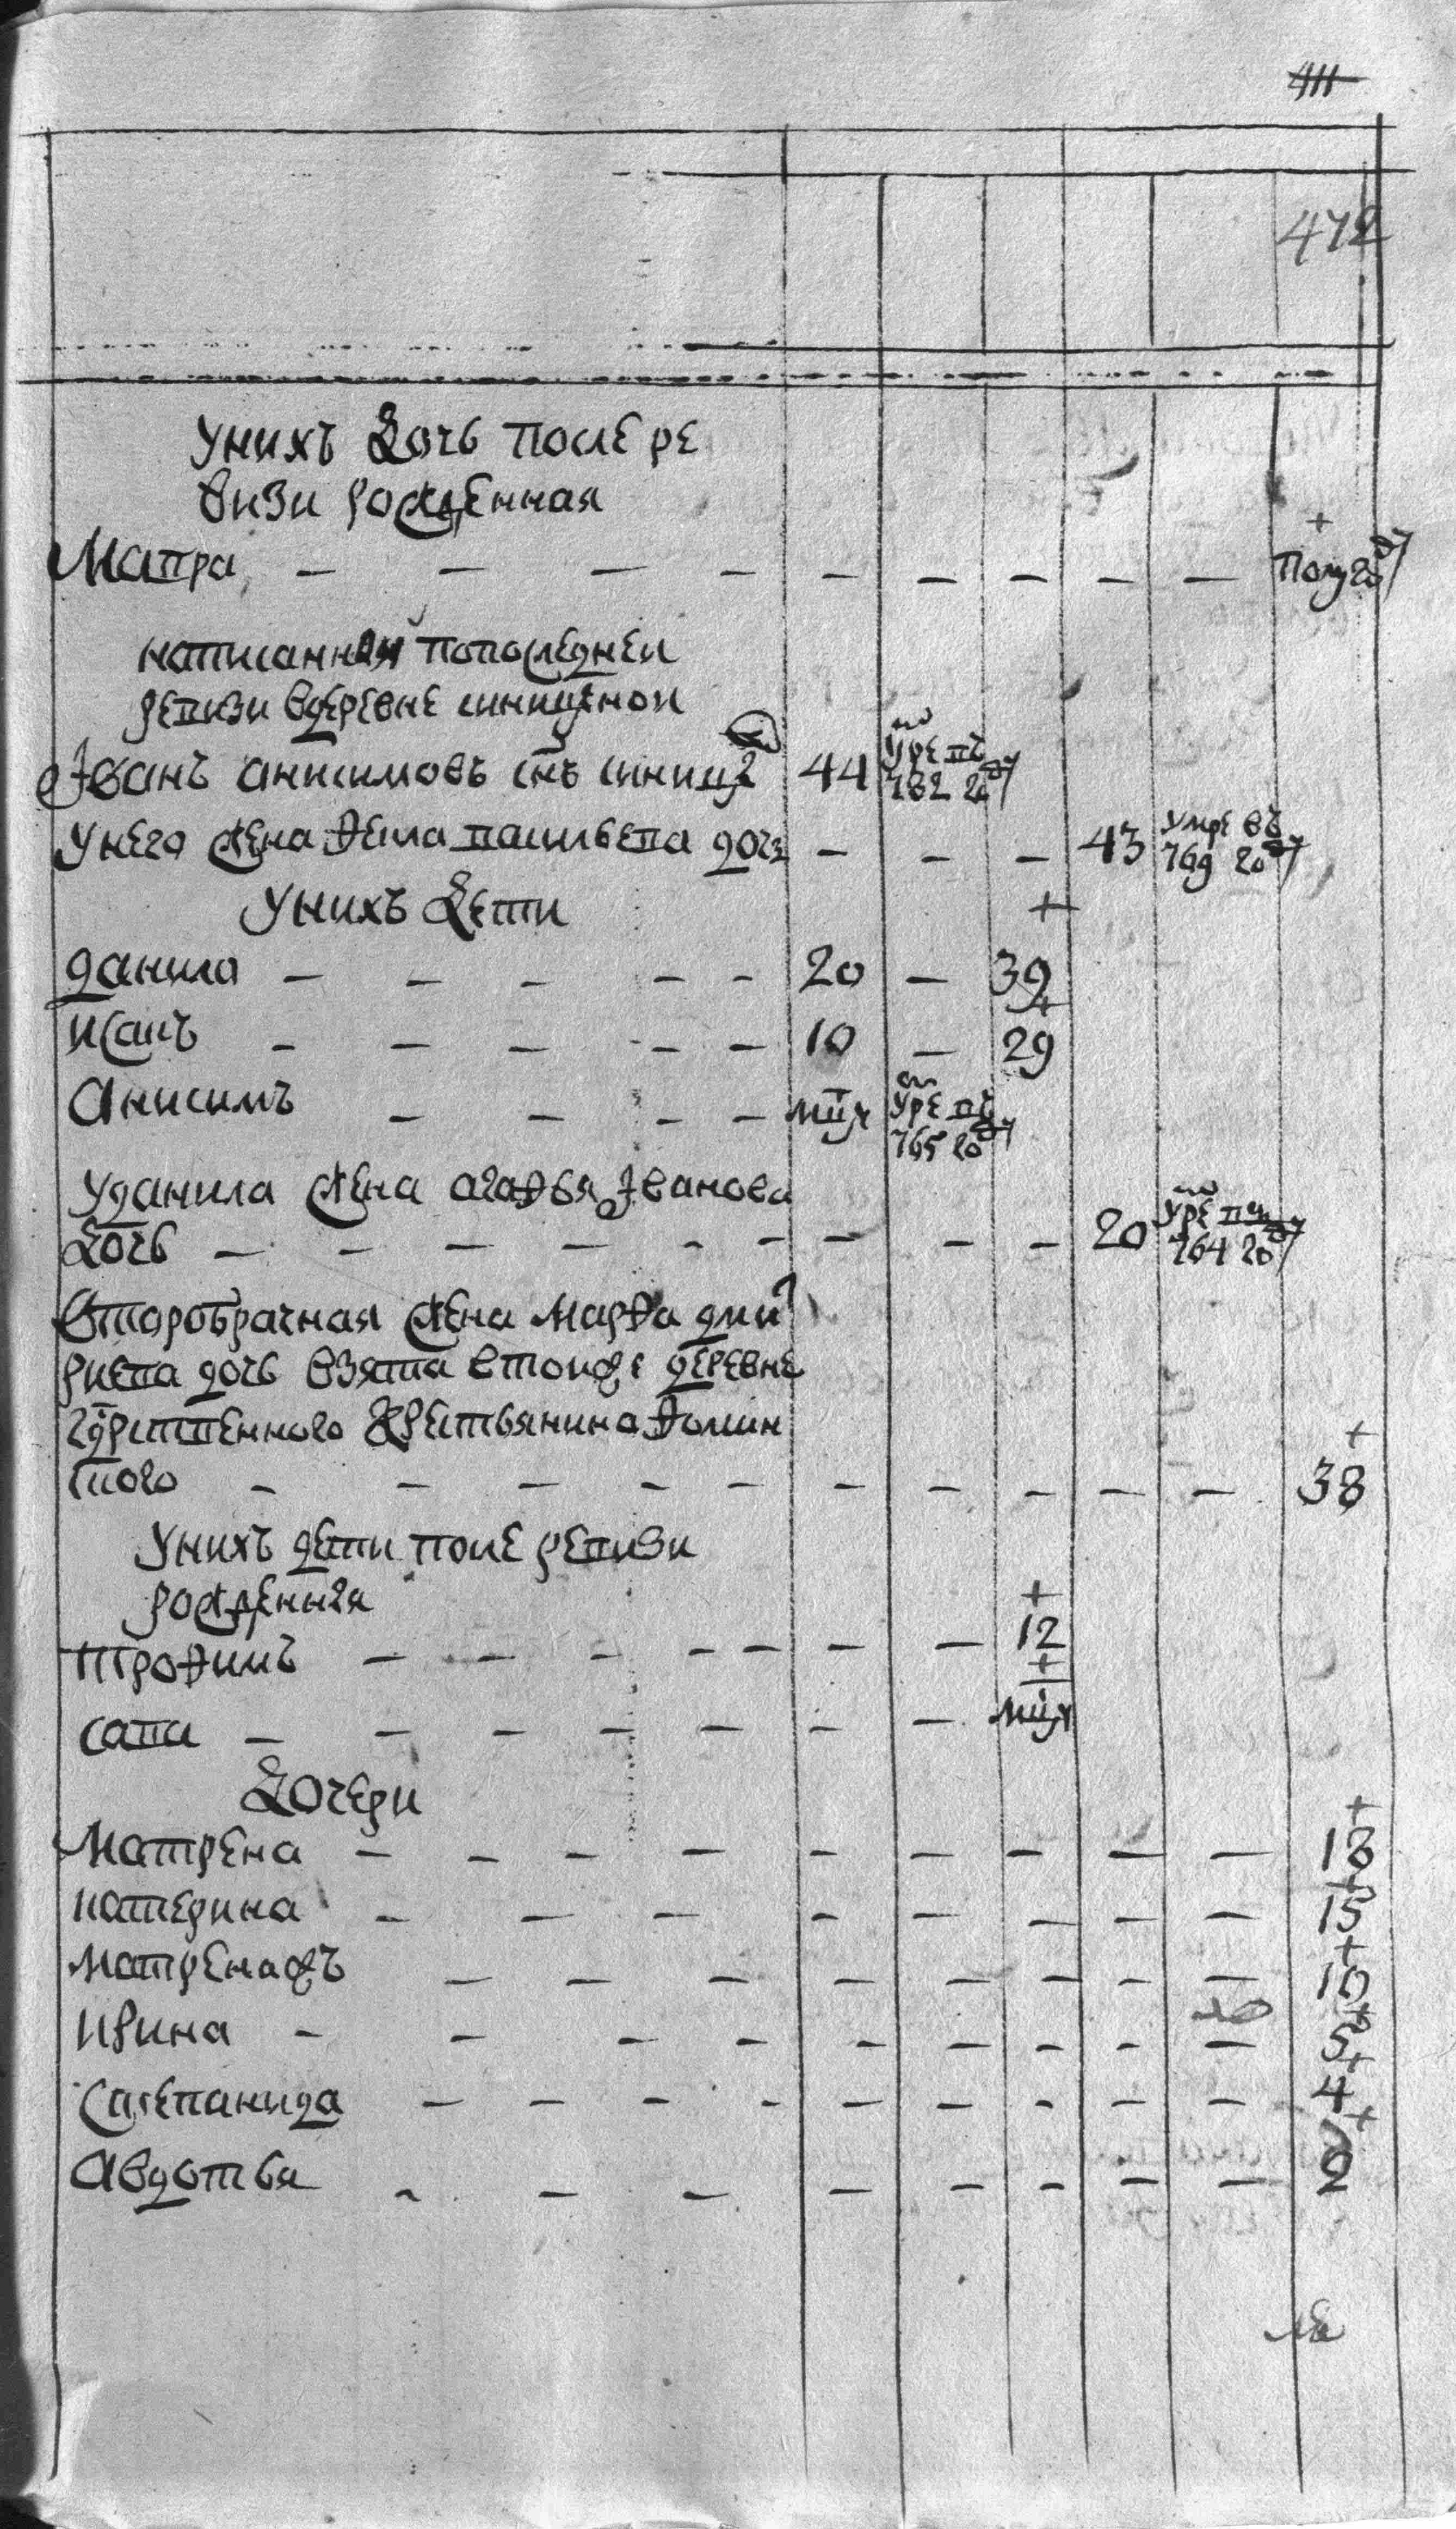 411
472
унихъ дочь после ре
визи рожденная
Мавра — — — — — — — — — полугоду
написанныя попоследнеи
ревизи вдеревне синицыной
Іванъ анисимовъ снъ синицы 44 умре въ 782 году
унего жена васильева дочь — — — 43 умре въ 769 году
унихъ дети
данила — — — — — 20 — 39
исаиъ — — — — — 10 — 29
Анисимъ — — — — мцъ умре въ 765 году
уданила жена агафья Іванова
дочь — — — — — — — — — 20 умре въ 764 году
второбрачная жена Марфа дми
риева дочь взята втоиже деревне
гдрственного крестьянина
— — — — — — — — — — 38
унихъ дети после ревизи
рожденныя
трофимъ — — — — — — — 12
сава — — — — — — — мцъ
дочери
Матрена — — — — — — — — — 18
катерина — — — — — — — — 15
Матренажъ — — — — — — — — 10
ирина — — — — — — — — — 5
степанида — — — — — — — — — 4
авдотья — — — — — — — — 2